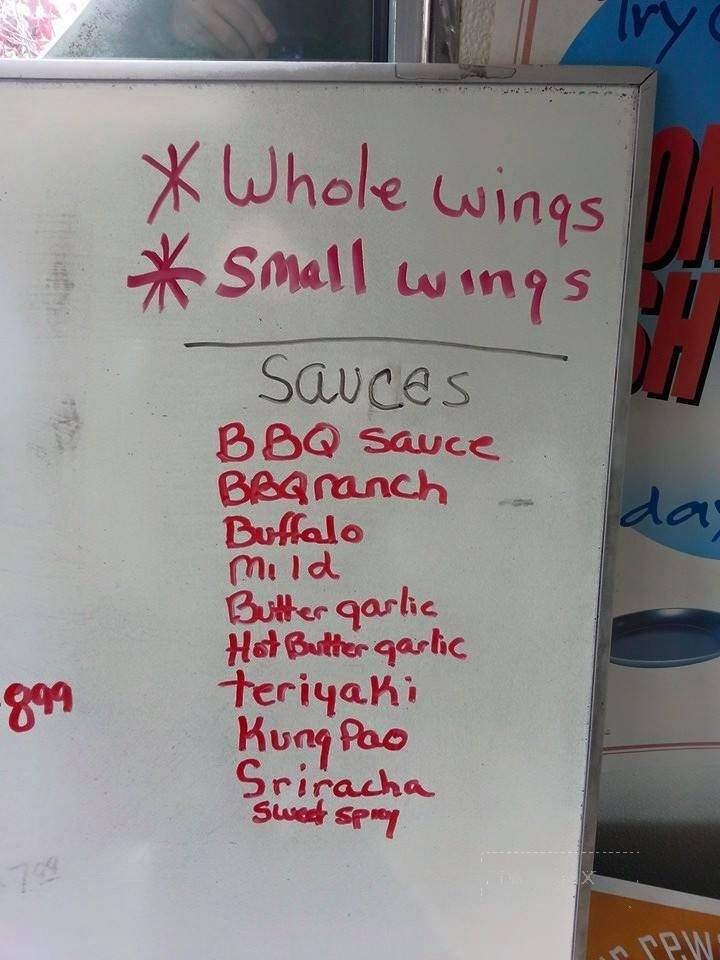 Try
* Whole wings
* Small wings
Sauces
BBQ sauce
BBQ ranch
Buffalo
Mild
Butter garlic
Hot Butter garlic
teriyaki
899
Kung Pao
Sriracha
Sweet spicy
799
day